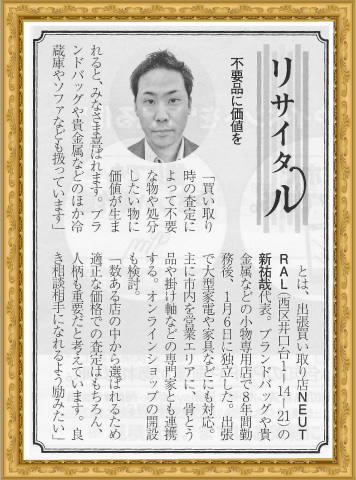 リサイタル
不要品に価値を
「買い取り
時の査定に
よって不要
な物や処分
したい物に
価値が生ま
れると、みなさま喜ばれます。ブラ
ンドバッグや貴金属などのほか冷
蔵庫やソファなども扱っています」
とは、出張買い取り店NEUT
RAL(西区井口台1―14―21)の
新祐哉代表。ブランドバッグや貴
金属などの小物専用店で8年間勤
務後、1月6日に独立した。出張
で大型家電や家具などにも対応。
主に市内を営業エリアに、骨とう
品や掛け軸などの専門家とも連携
する。オンラインショップの開設
も検討。
「数ある店の中から選ばれるため
適正な価格での査定はもちろん、
人柄も重要だと考えています。良
き相談相手になれるよう励みたい」